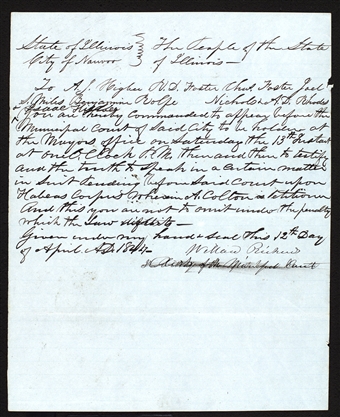 State of Illinois } The People of the State
City of Nauvoo } of Illinois—
To A. J. Higbee R. D. Foster Chas Foster Joel
S. Miles, Benjamin Wolfe Nicholas
& Isaac
You are hereby commanded to appear before the
Municipal Court of Said City to be holden at
the Mayors office on Saturday the 13th Instant
at one O, Clock P.M. then and there to testify
and the truth to Speak in a Certain matter
in Suit Pending before Said Court upon
Habeas Corpus wherein A. Colton is Petitioner
And this you are not to omit under the penalty
which the Law
Given under my hand & Seal this 12th Day
of April A.D. 1844—
Willard Richards
Clerk of the Municipal Court